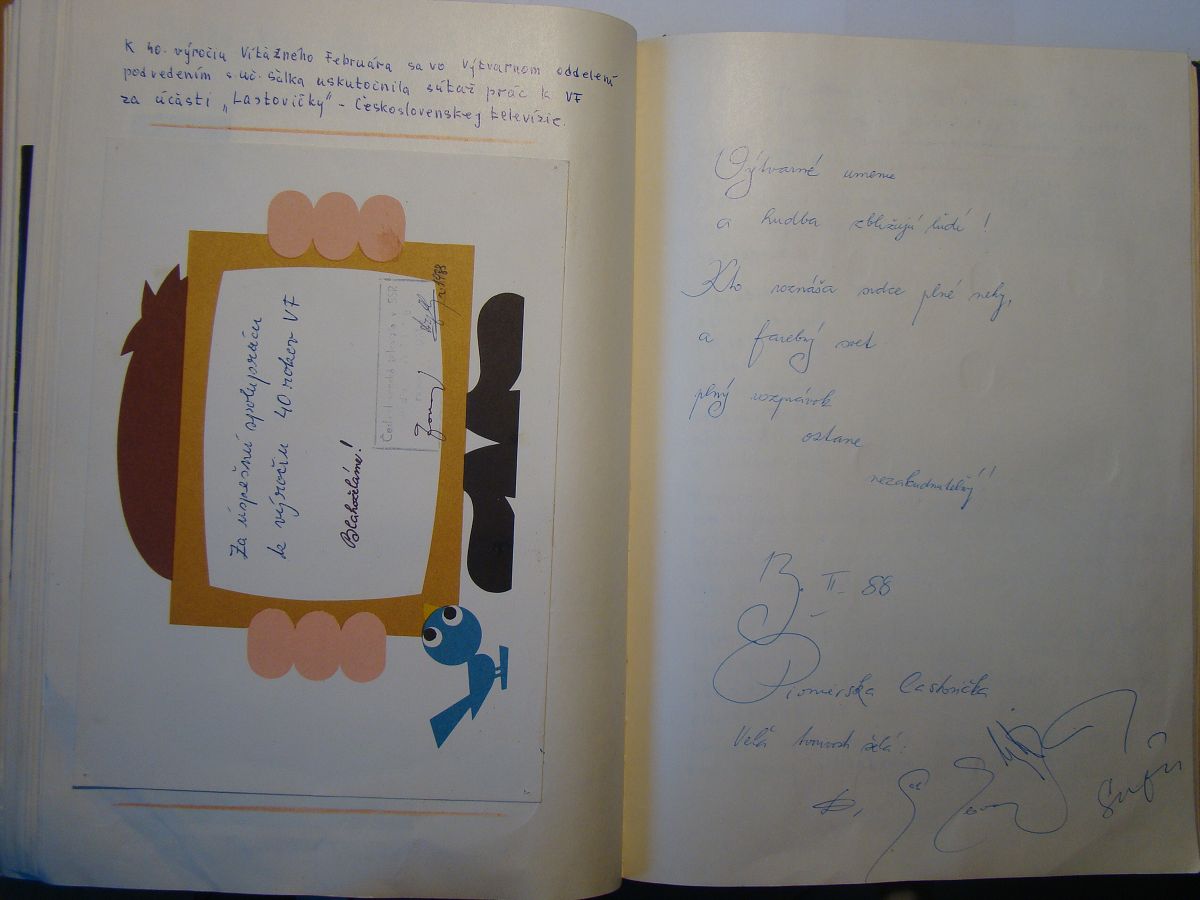 K 40. výročiu Víťazného Februára sa vo výtvarnom oddelení
podvedením s. uč. Sálka uskutočnila súťaž prác k VF
za účasti „Lastovičky" - Československej televízie.
Za úspešnú spoluprácu
k výročiu 40 rokov VF
Blahoželáme!
1988
Výtvarné umenie
a hudba zbližujú ľudí!
Kto roznáša srdce plné nehy,
a farebný svet
plný rozprávok
ostane
nezabudnuteľný!!
13. II. 88
Pionierska lastovička
Veľa tvorivosti želá: